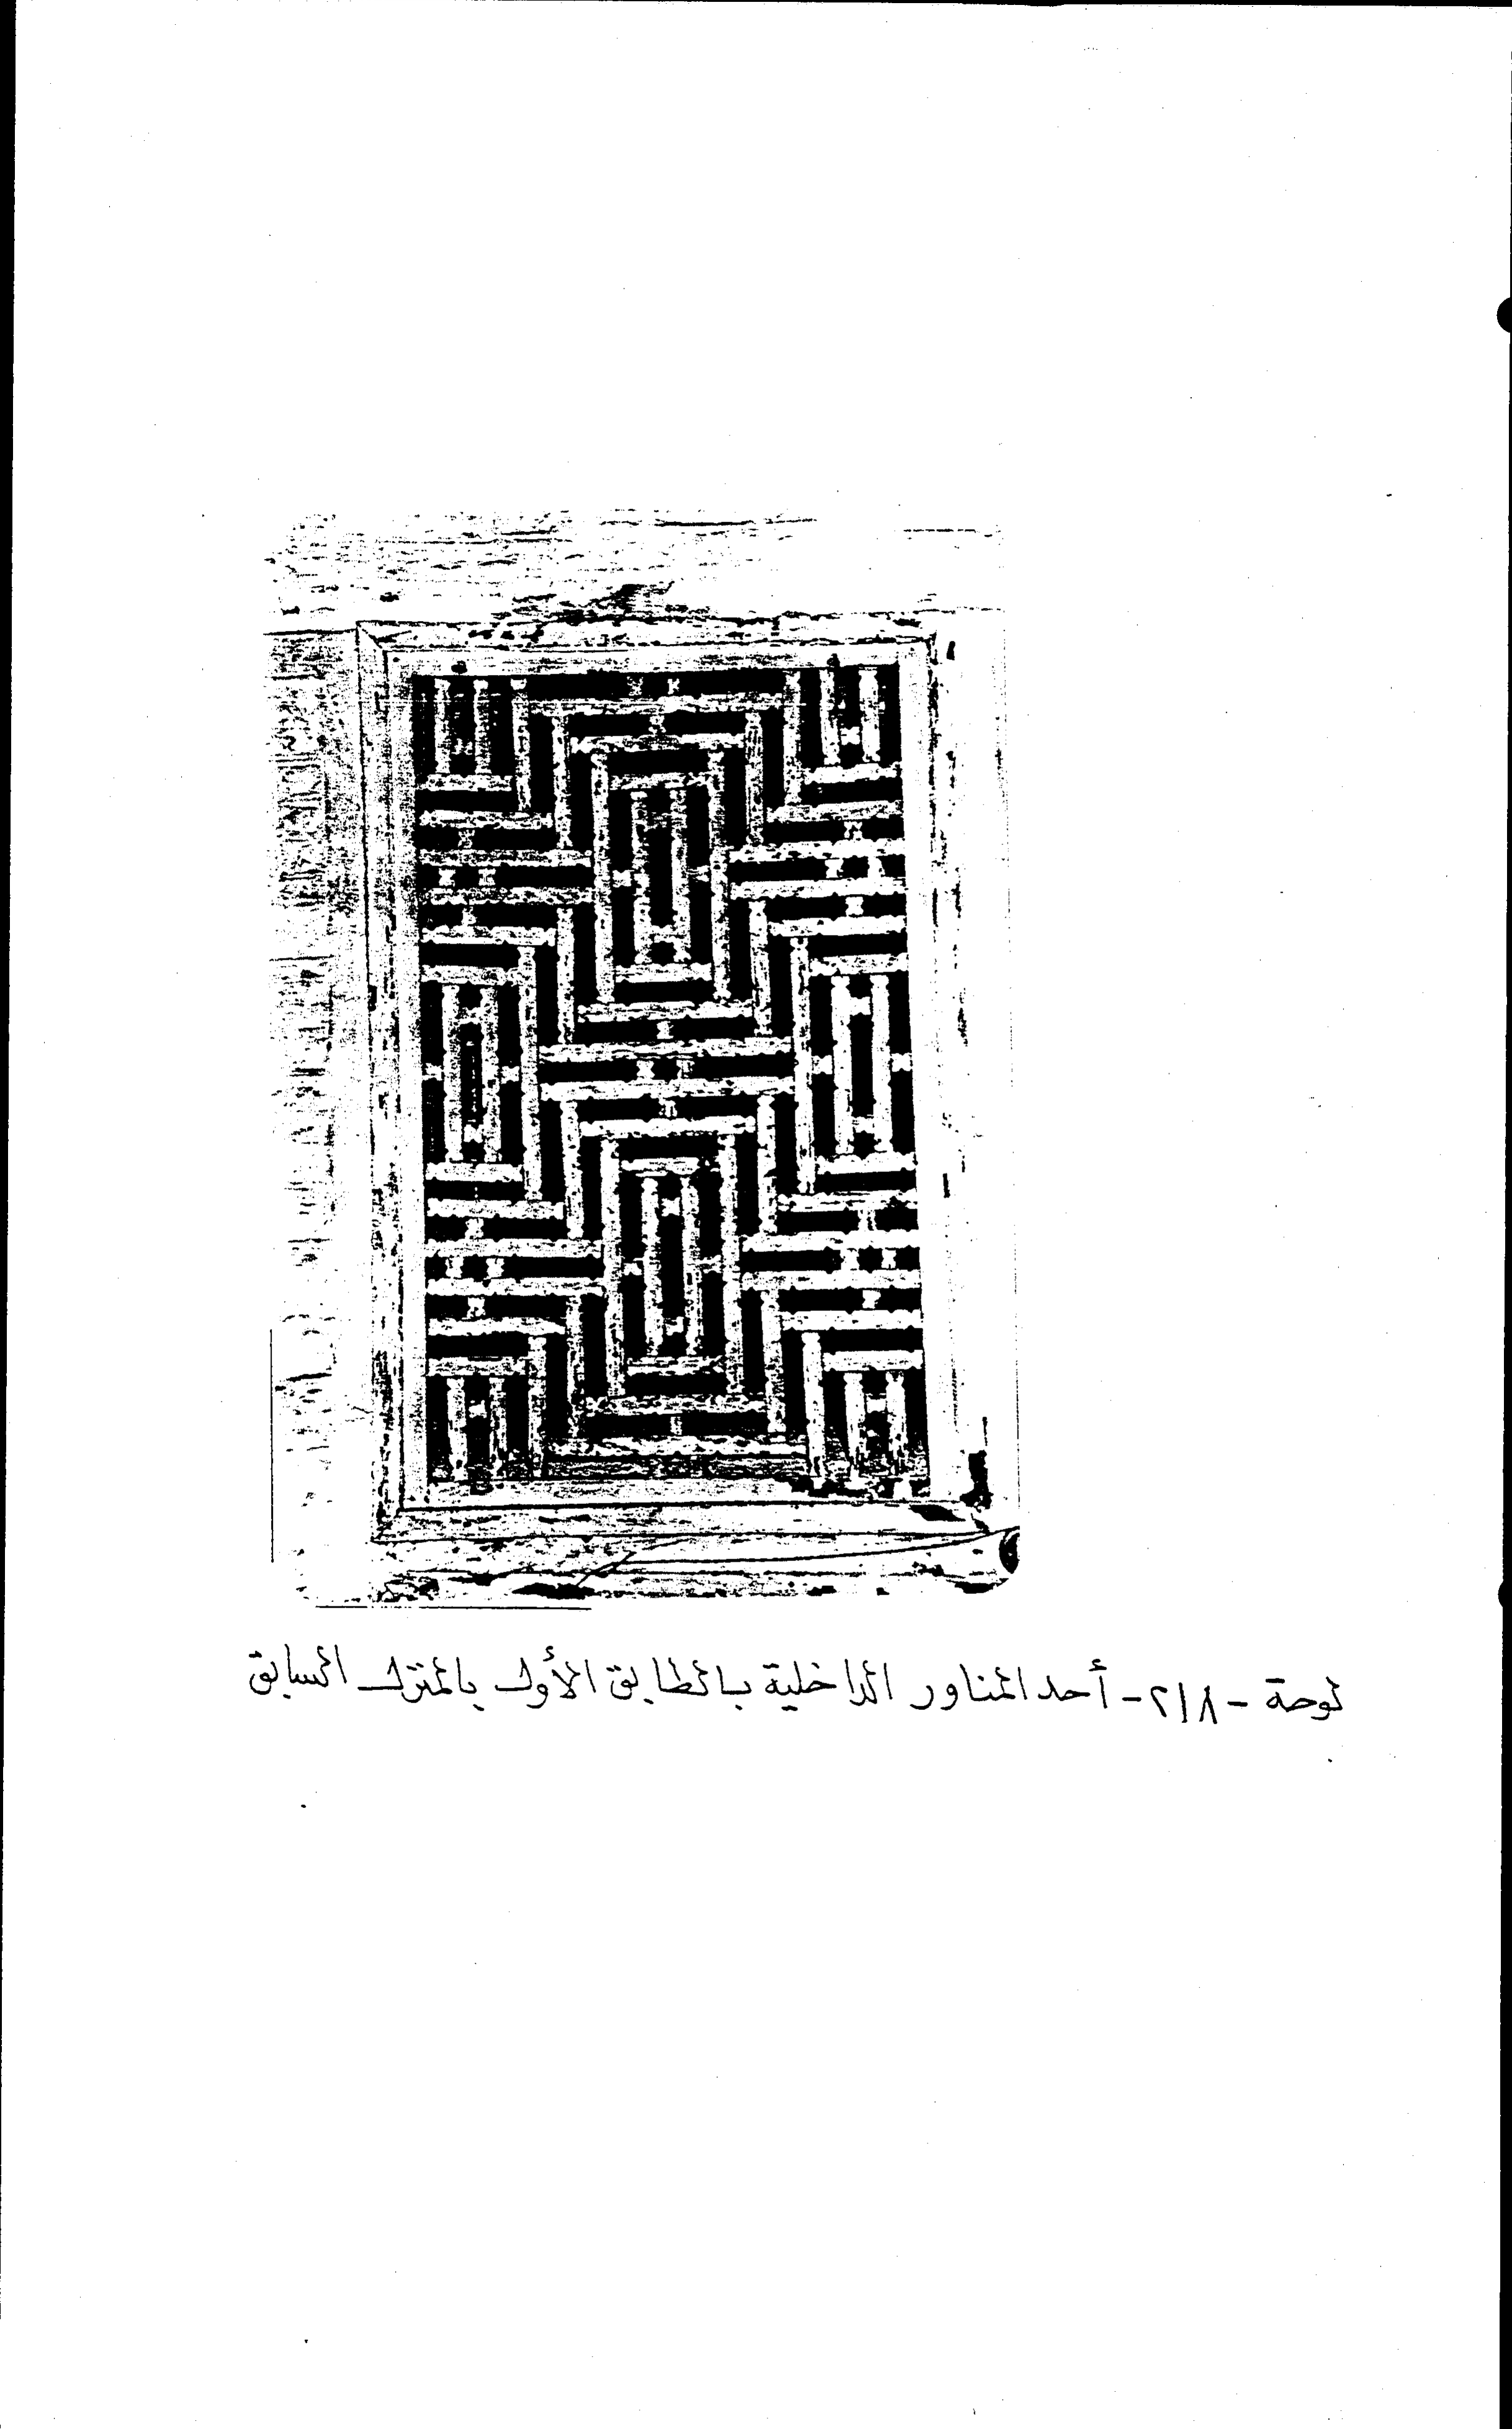 لوحة - ٢١٨ - أحد المناور الداخلية بالطابق الأول بالمنزل السابق